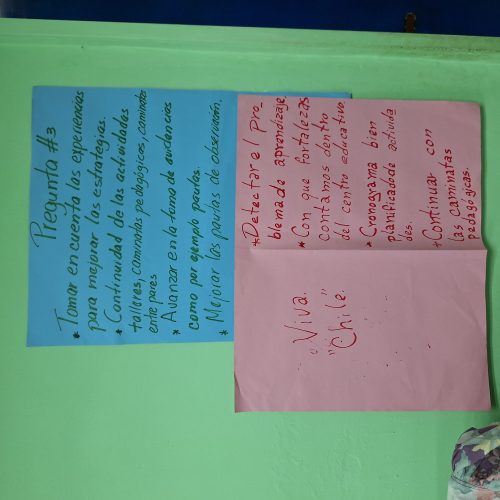 Pregunta #3
* Tomar en cuenta las experiencias
para mejorar las estrategias.
* Continuidad de las actividades
talleres, caminatas pedagógicas, caminatas
entre pares
* Avanzar en la toma de evidencias
como por ejemplo pautas.
* Mejorar las pautas de observación.
* Detectar el pro_
blema de aprendizaje.
* Con que fortalezas
contamos dentro
del centro educativo.
* Cronograma bien
planificadode activida
des.
+ Continuar con
las caminatas
pedagógicas.
Viva.
"Chile".